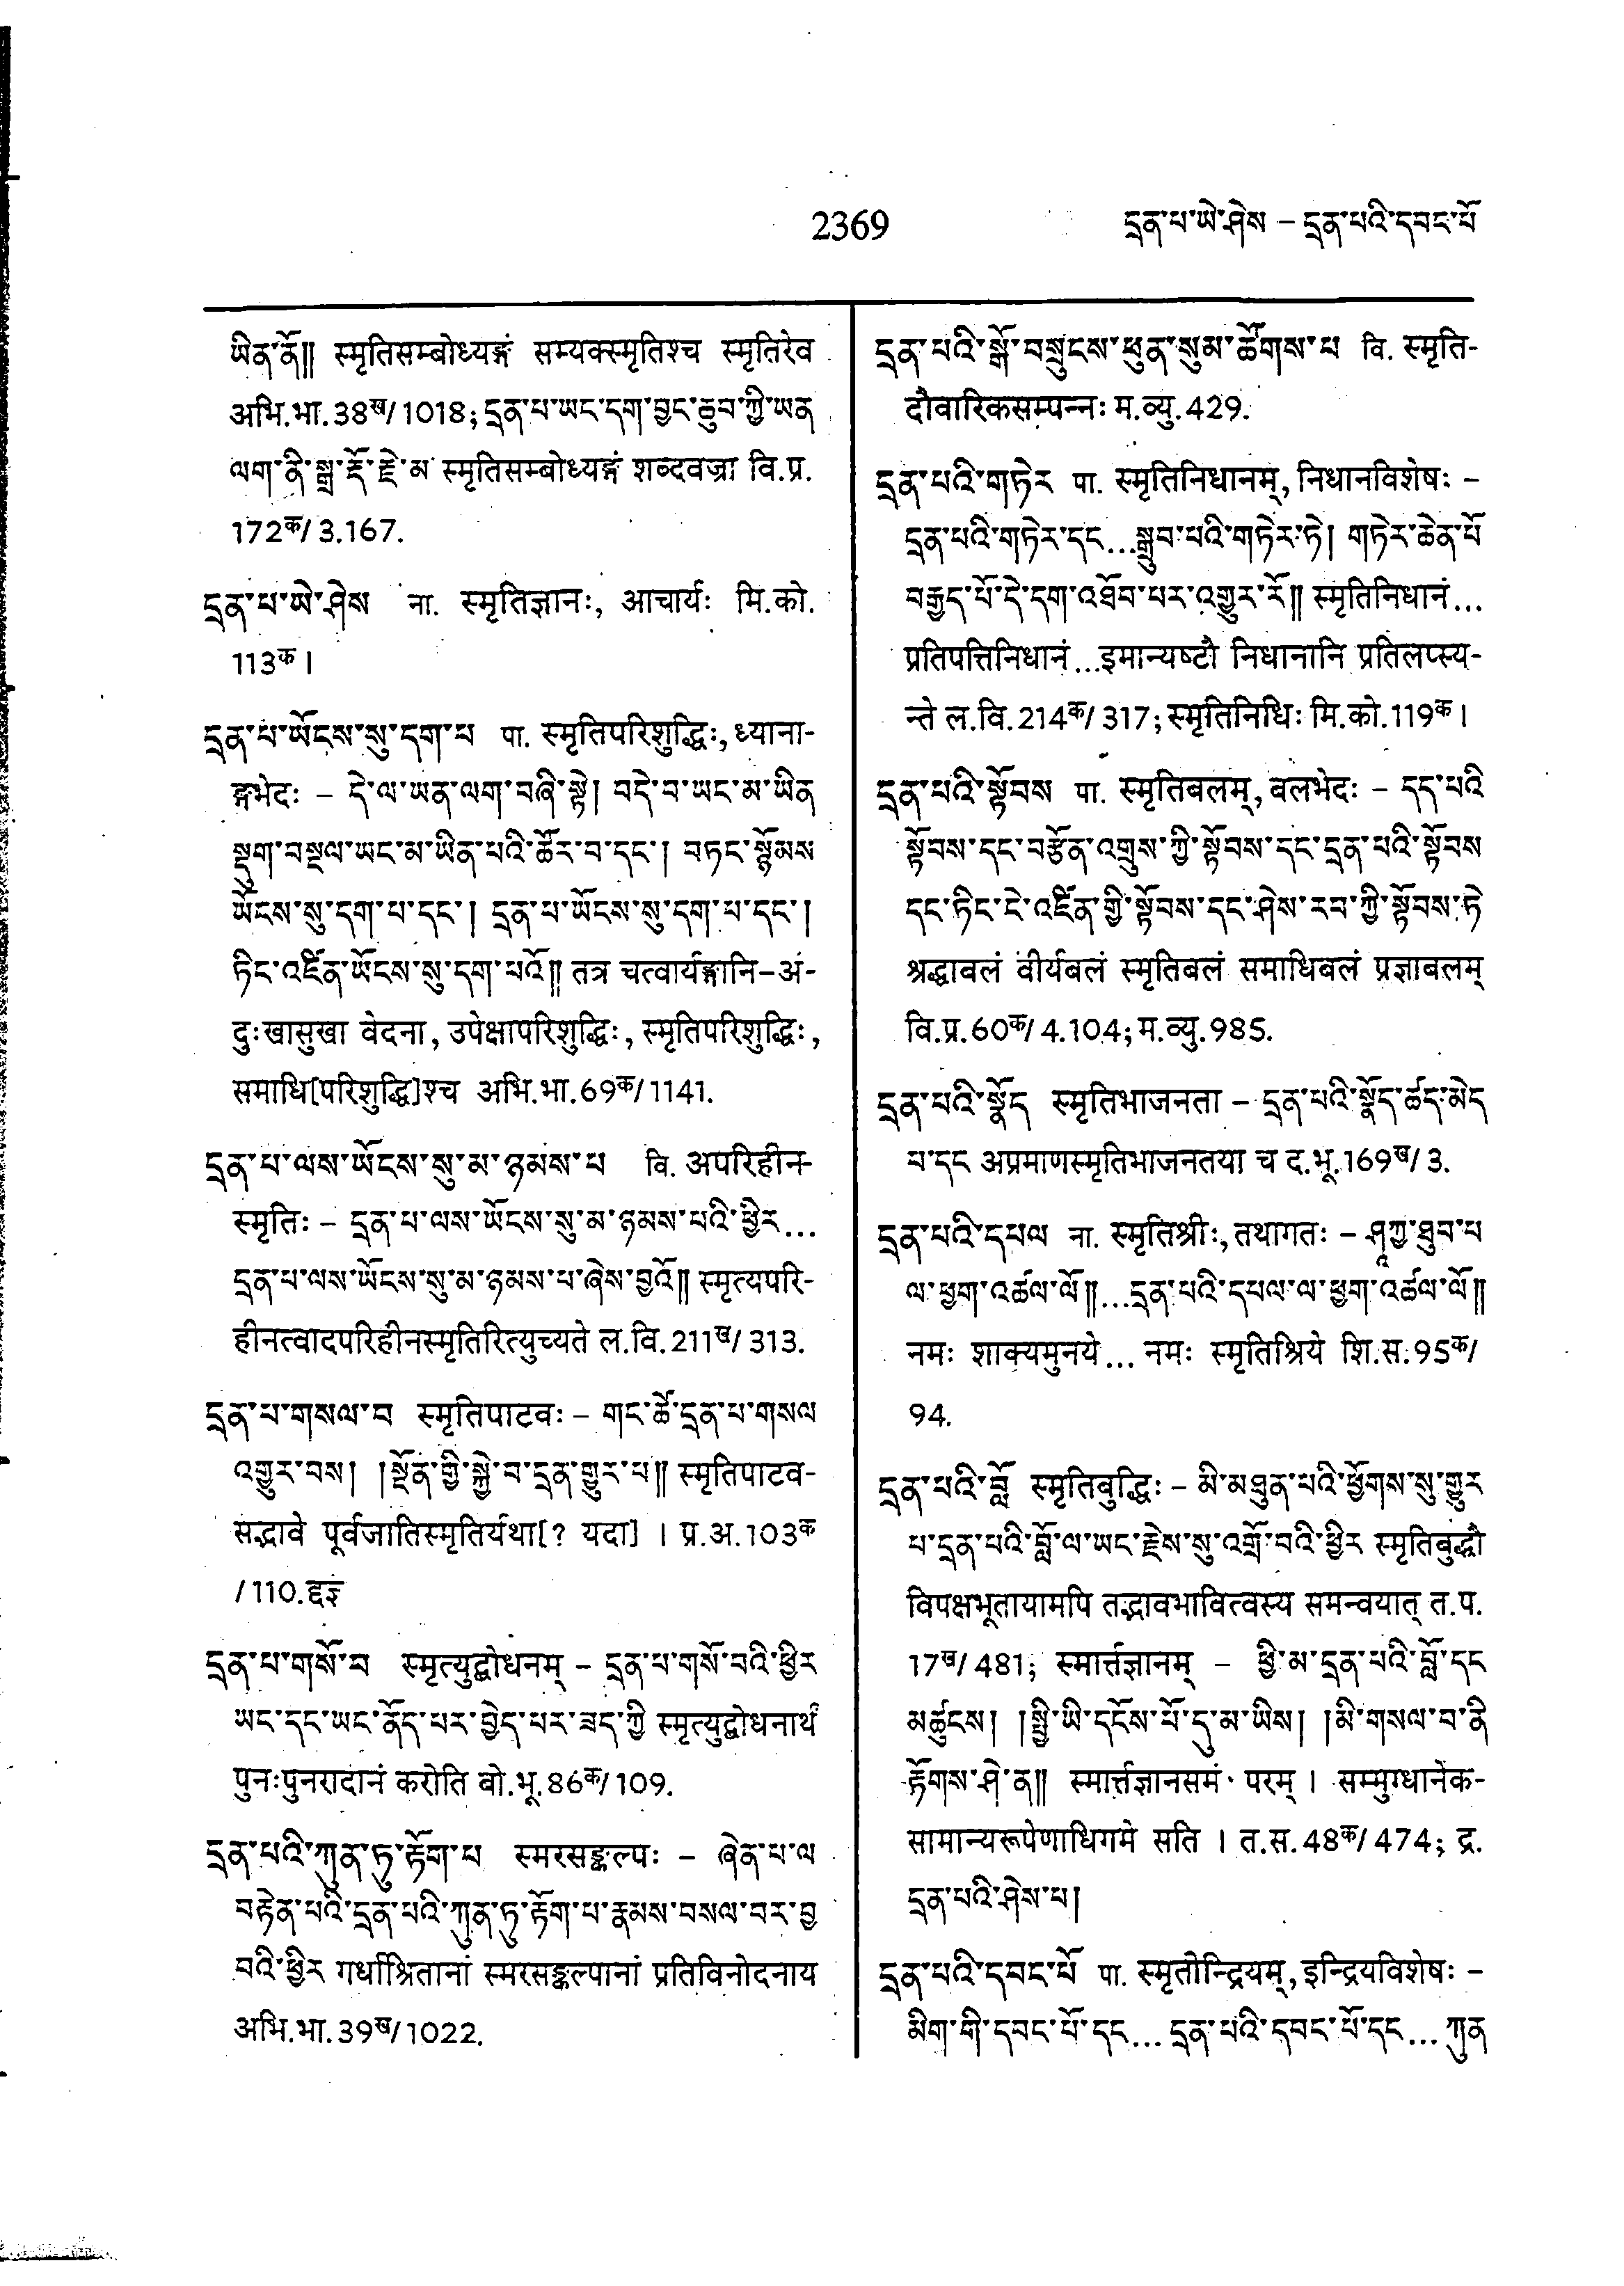 2369
དྲན་པ་ཡེ་ཤེས – དྲན་པའི་དབང་པོ
ཡིན་ནོ།། स्मृतिसम्बोध्यङ्गं सम्यक्स्मृतिश्च स्मृतिरेव
अभि.भा.38ख/1018; དྲན་པ་ཡང་དག་བྱང་ཆུབ་ཀྱི་ཡན
ལག་ནི་སྒྲ་རྡོ་རྗེ་མ स्मृतिसम्बोध्यङ्गं शब्दवज्रा वि.प्र.
172क/3.167.
དྲན་པ་ཡེ་ཤེས ना. स्मृतिज्ञानः, आचार्यः मि.को.
113क।
དྲན་པ་ཡོངས་སུ་དག་པ पा. स्मृतिपरिशुद्धिः, ध्याना-
ङ्गभेदः – དེ་ལ་ཡན་ལག་བཞི་སྟེ། བདེ་བ་ཡང་མ་ཡིན
སྡུག་བསྔལ་ཡང་མ་ཡིན་པའི་ཚོར་བ་དང་། བཏང་སྙོམས
ཡོངས་སུ་དག་པ་དང་། དྲན་པ་ཡོངས་སུ་དག་པ་དང་།
ཏིང་འཛིན་ཡོངས་སུ་དག་པའོ།། तत्र चत्वार्यङ्गानि–अ-
दुःखासुखा वेदना, उपेक्षापरिशुद्धिः, स्मृतिपरिशुद्धिः,
समाधि[परिशुद्धि]श्च अभि.भा.69क/1141.
དྲན་པ་ལས་ཡོངས་སུ་མ་ཉམས་པ वि. अपरिहीन-
स्मृतिः – དྲན་པ་ལས་ཡོངས་སུ་མ་ཉམས་པའི་ཕྱིར...
དྲན་པ་ལས་ཡོངས་སུ་མ་ཉམས་པ་ཞེས་བྱའོ།། स्मृत्यपरि-
हीनत्वादपरिहीनस्मृतिरित्युच्यते ल.वि.211ख/313.
དྲན་པ་གསལ་བ स्मृतिपाटवः – གང་ཚེ་དྲན་པ་གསལ
འགྱུར་བས། །སྔོན་གྱི་སྐྱེ་བ་དྲན་གྱུར་པ།། स्मृतिपाटव-
सद्भावे पूर्वजातिस्मृतिर्यथा[? यदा] । प्र.अ.103क
/110.
དྲན་པ་གསོ་བ स्मृत्युद्बोधनम् – དྲན་པ་གསོ་བའི་ཕྱིར
ཡང་དང་ཡང་ནོད་པར་བྱེད་པར་ཟད་ཀྱི स्मृत्युद्बोधनार्थं
पुनःपुनरादानं करोति बो.भू.86क/109.
དྲན་པའི་ཀུན་ཏུ་རྟོག་པ स्मरसङ्कल्पः – ཞེན་པ་ལ
བརྟེན་པའི་དྲན་པའི་ཀུན་ཏུ་རྟོག་པ་རྣམས་བསལ་བར་བྱ
བའི་ཕྱིར गर्धाश्रितानां स्मरसङ्कल्पानां प्रतिविनोदनाय
अभि.भा.39ख/1022.
དྲན་པའི་སྒོ་བསྲུངས་ཕུན་སུམ་ཚོགས་པ वि. स्मृति-
दौवारिकसम्पन्नः म.व्यु.429.
དྲན་པའི་གཏེར पा. स्मृतिनिधानम्, निधानविशेषः –
དྲན་པའི་གཏེར་དང...སྒྲུབ་པའི་གཏེར་ཏེ། གཏེར་ཆེན་པོ
བརྒྱད་པོ་དེ་དག་འཐོབ་པར་འགྱུར་རོ།། स्मृतिनिधानं...
प्रतिपत्तिनिधानं...इमान्यष्टौ निधानानि प्रतिलप्स्य-
न्ते ल.वि.214क/317; स्मृतिनिधिः मि.को.119क।
དྲན་པའི་སྟོབས पा. स्मृतिबलम्, बलभेदः – དད་པའི
སྟོབས་དང་བརྩོན་འགྲུས་ཀྱི་སྟོབས་དང་དྲན་པའི་སྟོབས
དང་ཏིང་ངེ་འཛིན་གྱི་སྟོབས་དང་ཤེས་རབ་ཀྱི་སྟོབས་ཏེ
श्रद्धाबलं वीर्यबलं स्मृतिबलं समाधिबलं प्रज्ञाबलम्
वि.प्र.60क/4.104; म.व्यु.985.
དྲན་པའི་སྣོད स्मृतिभाजनता – དྲན་པའི་སྣོད་ཚད་མེད
པ་དང अप्रमाणस्मृतिभाजनतया च द.भू.169ख/3.
དྲན་པའི་དཔལ ना. स्मृतिश्रीः, तथागतः – ཤཱཀྱ་ཐུབ་པ
ལ་ཕྱག་འཚལ་ལོ།།...དྲན་པའི་དཔལ་ལ་ཕྱག་འཚལ་ལོ།།
नमः शाक्यमुनये... नमः स्मृतिश्रिये शि.स.95क/
94.
དྲན་པའི་བློ स्मृतिबुद्धिः – མི་མཐུན་པའི་ཕྱོགས་སུ་གྱུར
པ་དྲན་པའི་བློ་ལ་ཡང་རྗེས་སུ་འགྲོ་བའི་ཕྱིར स्मृतिबुद्धौ
विपक्षभूतायामपि तद्भावभावित्वस्य समन्वयात् त.प.
17ख/481; स्मार्त्तज्ञानम् – ཕྱི་མ་དྲན་པའི་བློ་དང
མཚུངས། །སྤྱི་ཡི་དངོས་པོ་དུ་མ་ཡིས། །མི་གསལ་བ་ནི
རྟོགས་ཤེ་ན།། स्मार्त्तज्ञानसमं परम् । सम्मुग्धानेक-
सामान्यरूपेणाधिगमे सति । त.स.48क/474; द्र.
དྲན་པའི་ཤེས་པ།
དྲན་པའི་དབང་པོ पा. स्मृतीन्द्रियम्, इन्द्रियविशेषः –
མིག་གི་དབང་པོ་དང... དྲན་པའི་དབང་པོ་དང... ཀུན